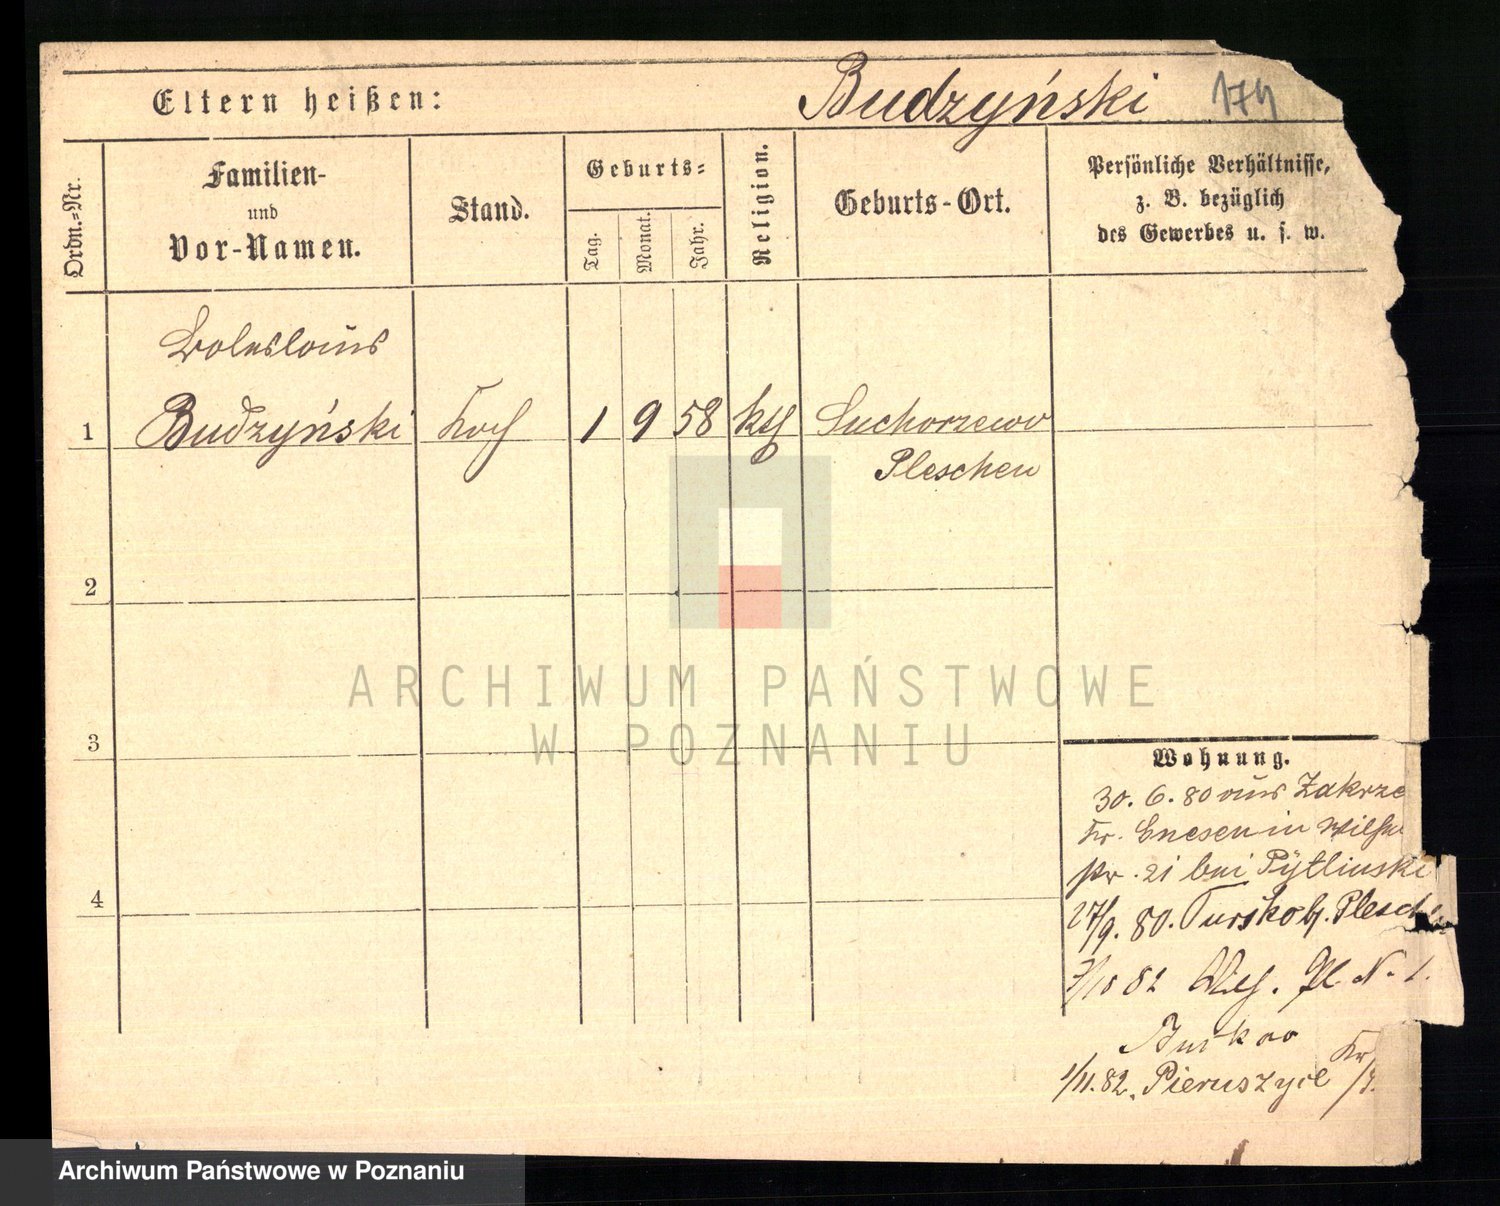 Eltern heißen: Budzyński 174
Ordn.=Nr.
Familien-
und
Vor-Namen.
Stand.
Geburts=
Tag.
Monat.
Jahr.
Religion.
Geburts-Ort.
Persönliche Verhältnisse,
z. B. bezüglich
des Gewerbes u. s. w.
Boleslaus
1 Budzyński Koch 1 9 58 kth Suchorzewo
Pleschen
2
3
4
Wohnung.
30. 6. 80 aus Zakrze
Kr. Gnesen in Wilh
Nr. 21 bei Pytlinski
27/9. 80. Tursko b/. Plesch
7/10 82 Pl. N. 1.
1/11. 82. Pieruszyce Kr/
ARCHIWUM PAŃSTWOWE
W POZNANIU
Archiwum Państwowe w Poznaniu